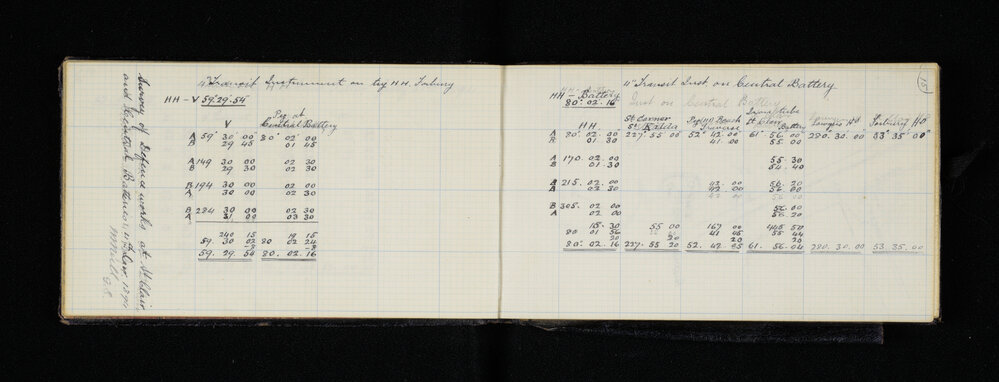 Survey of Defence works at St Clair,
and Central Batteries,
4" Transit Instrument on trig HH. Tahuna
HH - V 59°.29.54"
Peg at
V Central Battery
A 59° 30 00 80° 02' 00
B 29 45 01 45
A 149 30 00 02 30
B 29 30 02 30
B 194 30 00 02 00
A 30 00 02 30
B 284 30 00 02 30
A 31 00 03 30
240 15 19 15
59. 30 02 80 02 24
-8 -8
59. 29. 54 80. 02. 16
15
4" Transit Inst. on Central Battery
HH - Battery
80°. 02. 16
Inst on Central Battery
St Corner
St Kilda
Peg at Beach
Traverse
St Clair
Battery
HH.
A 80°. 02. 00 227° 55 00 52° 42. 00 61° 56. 00 280. 30. 00 53° 35' 00"
B 01 30 41. 00 55. 00
A 170. 02. 00 55. 30
B 01. 30 54. 40
B 215. 02. 00 42. 00 56. 20
A 02. 30 42 00 56. 00
B 305. 02. 00 56. 00
A 02. 00 56. 20
15. 30 55 00 167 00 445 50
80 01 56 41 45 55 44
20 20 20 20
80°. 02. 16 227. 55 20 52. 42. 05 61. 56. 04 280. 30. 00 53. 35. 00